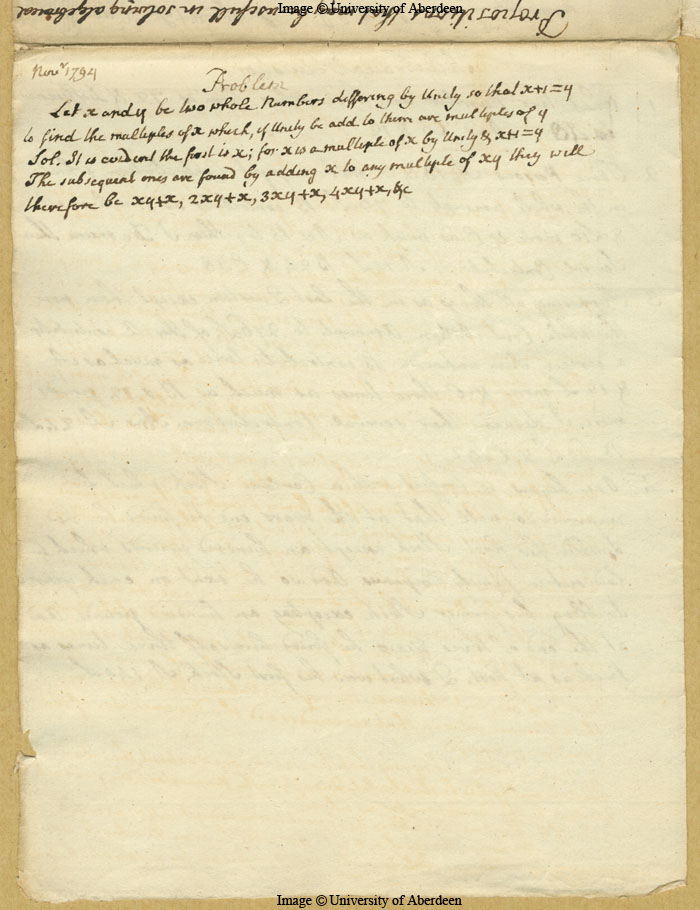 Image © University of Aberdeen
Propositions that may be usefull in solving algebraical
Novr 1794
Problem
Let x and y be two whole Numbers differing by Unity so that x+1=y
to find the multiples of x which, if Unity be add to them are multiples of y
Sol. It is evident the first is x; for x is a multiple of x by Unity & x+1=y
The subsequent ones are found by adding x to any multiple of xy they will
therefore be xy+x, 2xy+x, 3xy+x, 4xy+x, &c
Image © University of Aberdeen